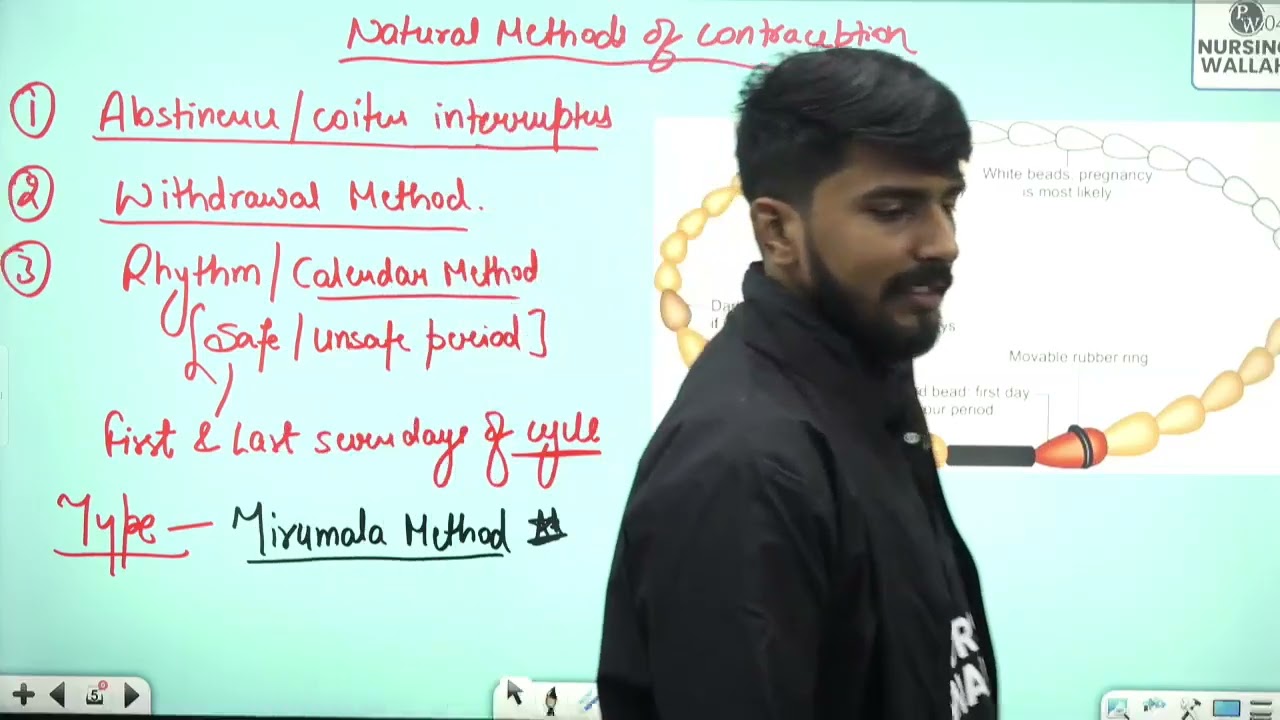 Natural Methods of contraception
04
NURSING
WALLAH
① Abstinence/coitus interruptus
② Withdrawal Method.
③ Rhythm/Calendar Method
[Safe/unsafe period]
First & Last seven days of cycle
Type — Mirumala Method
White beads: pregnancy
is most likely
Movable rubber ring
bead: first day
period
5